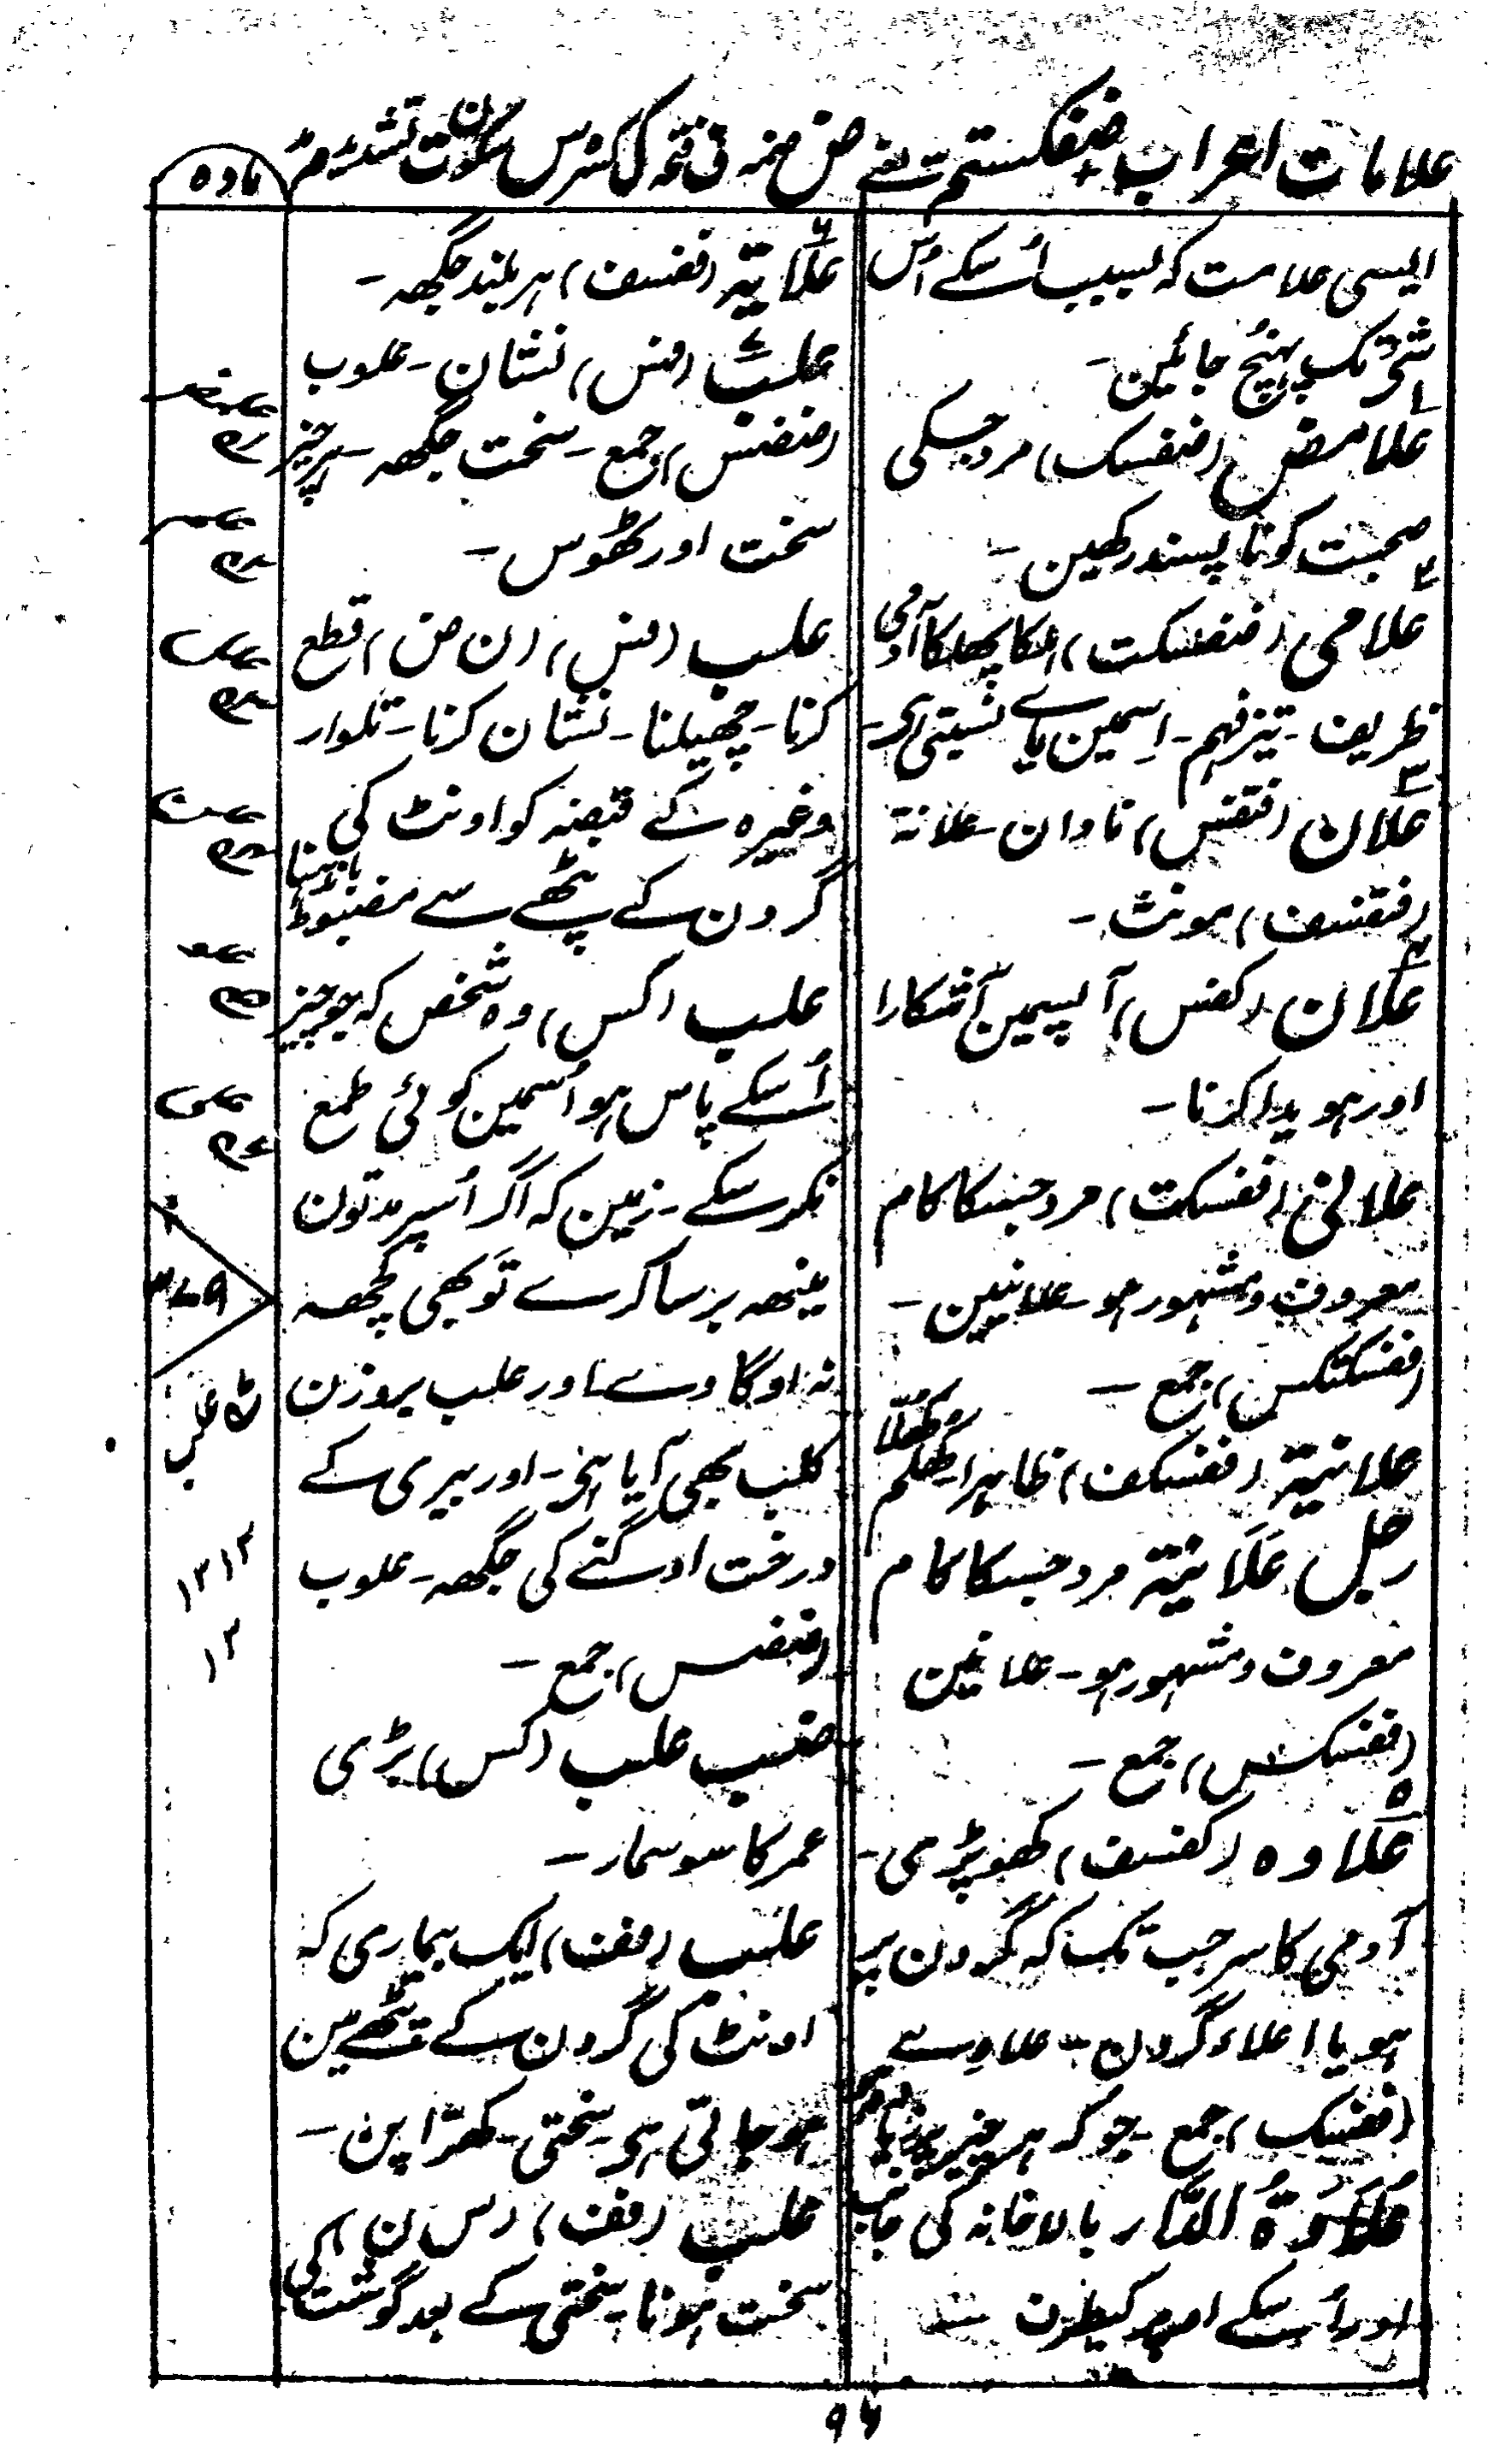 علامات اعراب ضفکستم یعنے ض ضمہ ف فتحہ ک کسرہ س سکون ت تشدید م مد
مادہ
ایسی علامت کہ بسبب اُسکے اُس
شئ تک پہنچ جائین۔
علامض (ضفسک) مرد جسکی
صحبت کو ناپسند رکھین۔
علامی (ضفسکت) ہلکا پھلکا آدمی
ظریف۔ تیز فہم۔ اسمین یاے نسبتی ہے۔
علان (فتفس) نادان۔ علانة
(فتفسف) مونث۔
علان (کفس) آپسمین آشکارا
اور ہویدا کرنا۔
علانی (ففسکت) مرد جسکا کام
معروف و مشہور ہو۔ علانیین۔
(ففسکتکس) جمع۔
علانیة (ففسکف) ظاہرا۔ کھلم کھلا
رجل عَلَانِیَة مرد جسکا کام
معروف و مشہور ہو۔ علانین
(ففسکس) جمع۔
علاوہ (کفسف) کھوپڑی۔
آدمی کا سر جب تک کہ گردن پر
ہو یا اعلاء گردن۔ علاوے
(ففسک) جمع۔ جو کہ ہر چیز پر
عُلَاوَةُ الدَّار بالاخانہ کی جانب
اور اُسکے اوپر کیطرف
علّایة (ففسف) ہر بلند جگھہ۔
علب (فس) نشان۔ علوب
(ضضس) جمع۔ سخت جگھہ۔ ہر چیز
سخت اور ٹھوس۔
علب (فس) (ن ض) قطع
کرنا۔ چھیلنا۔ نشان کرنا۔ تلوار
وغیرہ کے قبضہ کو اونٹ کی
گردن کے پٹھے سے مضبوط باندھنا
علب (کس) وہ شخص کہ جو چیز
اُسکے پاس ہو اُسمین کوئی طمع
نکر سکے۔ زمین کہ اگر اُسپر مدتون
مینھہ برسا کرے تو بھی کچھہ
نہ اوگا دے اور علب بروزن
کلب بھی آیا ہی۔ اور بیری کے
درخت اوگنے کی جگھہ۔ علوب
(ضضس) جمع۔
ضب علب (کس) بڑی
عمر کا سوسمار۔
علب (فف) ایک بیماری کہ
اونٹ کی گردن کے پٹھے مین
ہو جاتی ہی۔ سختی۔ کھڑاپن۔
علب (فف) (س ن)
سخت ہونا۔ سختی کے بعد گوشت کی
علب
۱۳۱۲
۱۲
۹۶